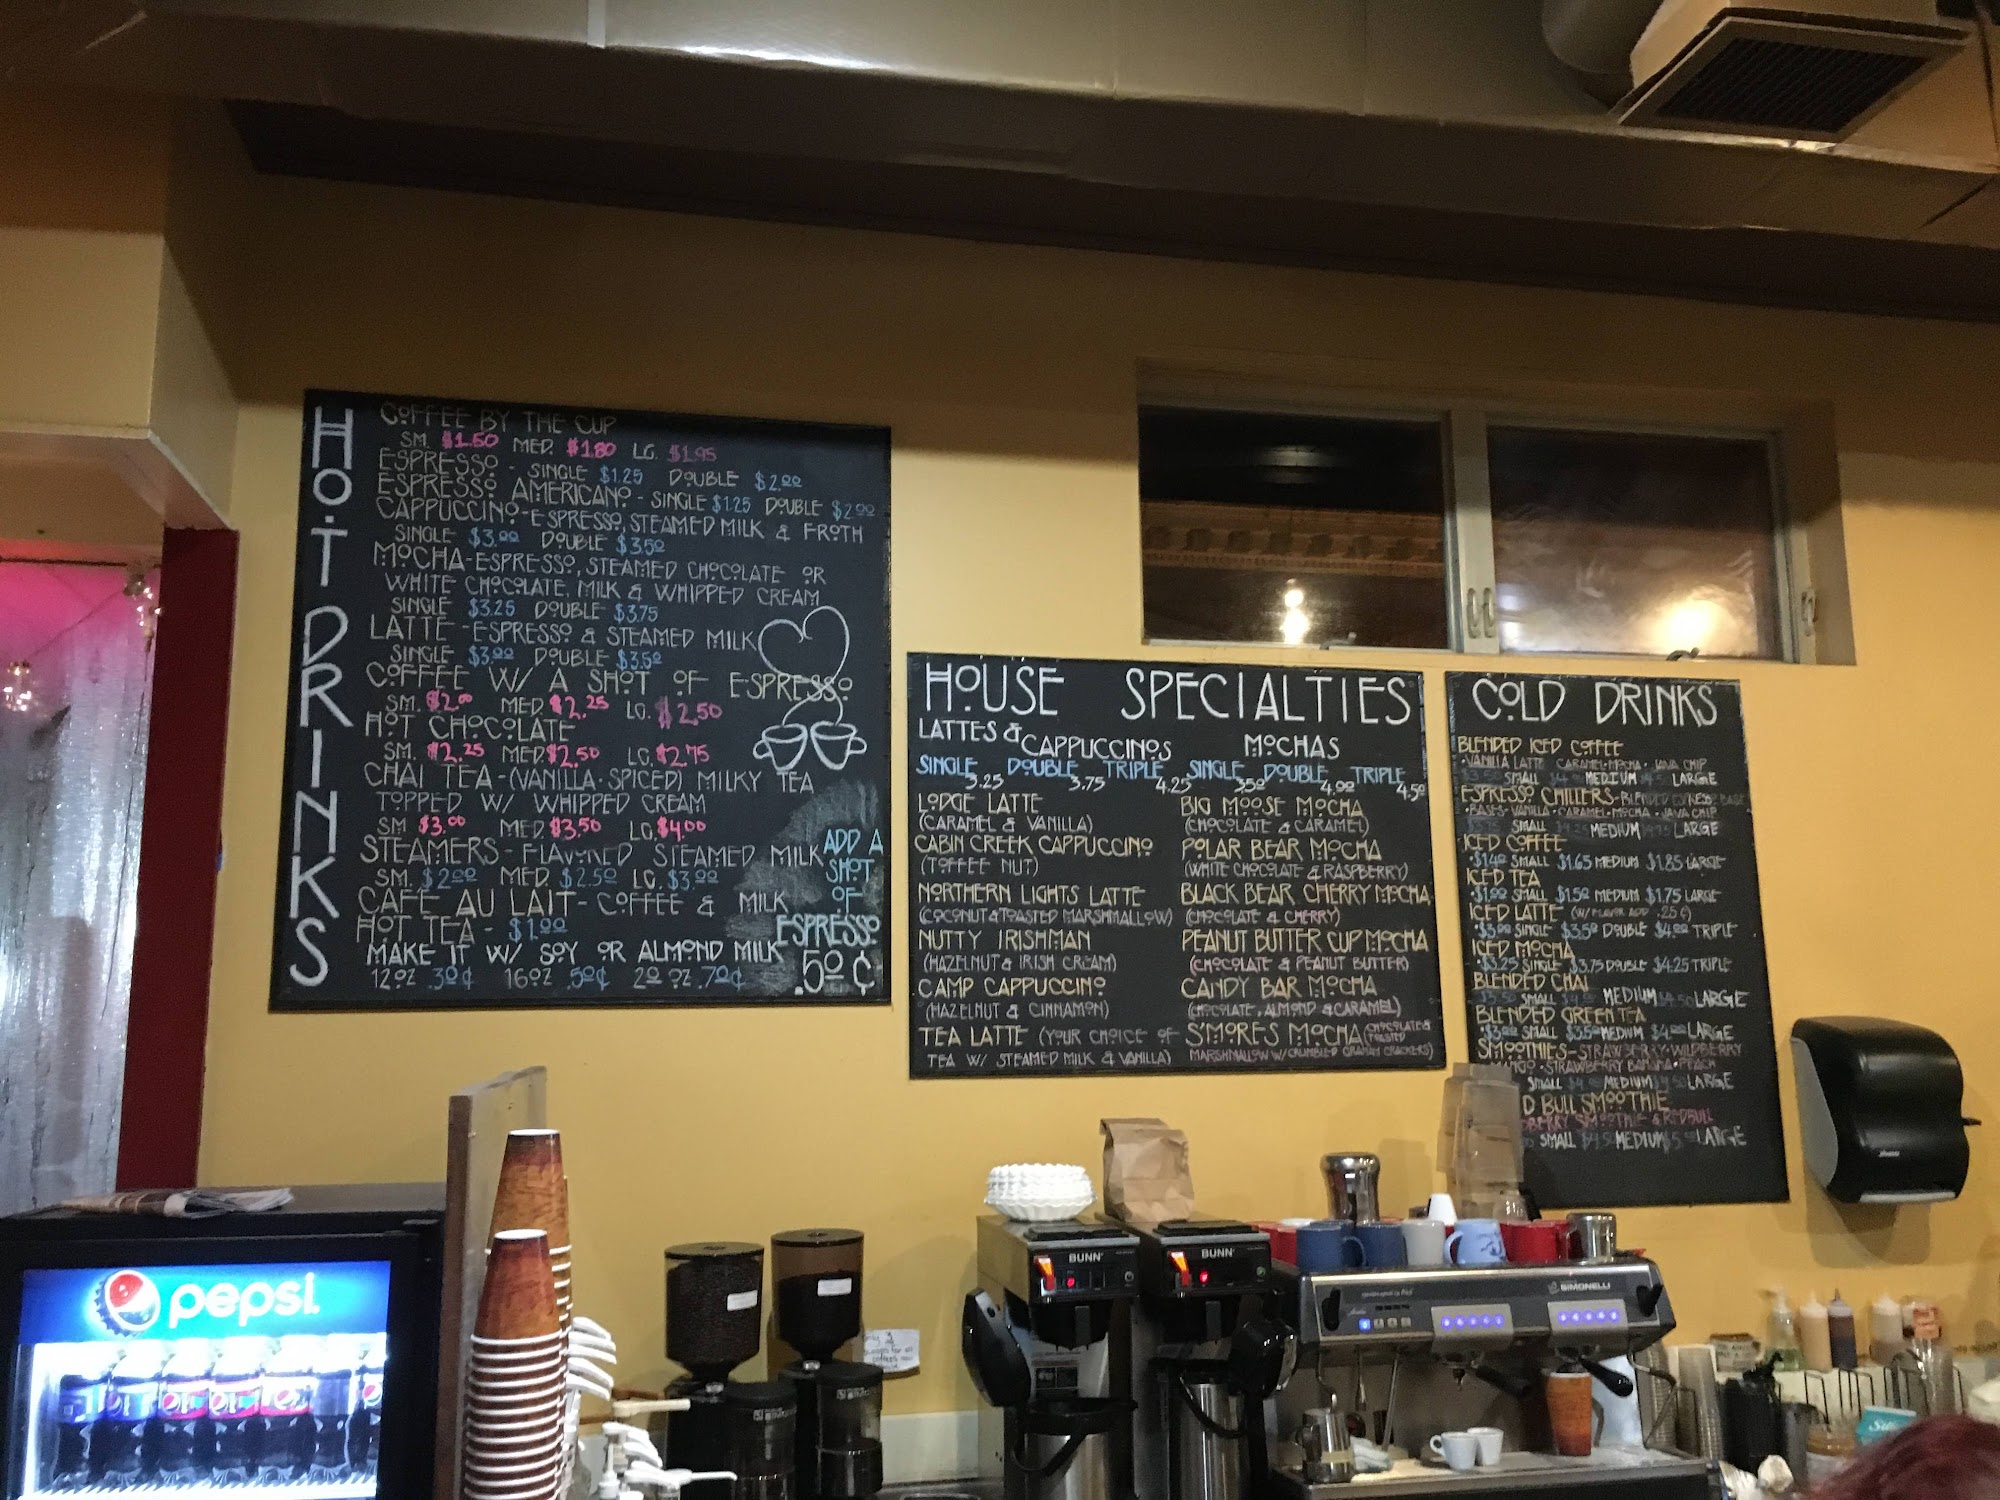 HOT DRINKS
COFFEE BY THE CUP
SM. $1.50 MED. $1.80 LG. $1.95
ESPRESSO - SINGLE $1.25 DOUBLE $2.00
ESPRESSO AMERICANO - SINGLE $1.25 DOUBLE $2.00
CAPPUCCINO - ESPRESSO, STEAMED MILK & FROTH
SINGLE $3.00 DOUBLE $3.50
MOCHA - ESPRESSO, STEAMED CHOCOLATE OR
WHITE CHOCOLATE, MILK & WHIPPED CREAM
SINGLE $3.25 DOUBLE $3.75
LATTE - ESPRESSO & STEAMED MILK
SINGLE $3.00 DOUBLE $3.50
COFFEE W/ A SHOT OF ESPRESSO
SM. $2.00 MED. $2.25 LG. $2.50
HOT CHOCOLATE
SM. $2.25 MED. $2.50 LG. $2.75
CHAI TEA - (VANILLA · SPICED) MILKY TEA
TOPPED W/ WHIPPED CREAM
SM $3.00 MED. $3.50 LG. $4.00
STEAMERS - FLAVORED STEAMED MILK
SM. $2.00 MED. $2.50 LG. $3.00
CAFE AU LAIT - COFFEE & MILK
HOT TEA - $1.00
MAKE IT W/ SOY OR ALMOND MILK
12OZ .30¢ 16OZ .50¢ 20 OZ .70¢
ADD A
SHOT
OF
ESPRESSO
.50¢
HOUSE SPECIALTIES
LATTES &
CAPPUCCINOS
SINGLE DOUBLE TRIPLE
3.25 3.75 4.25
LODGE LATTE
(CARAMEL & VANILLA)
CABIN CREEK CAPPUCCINO
(TOFFEE NUT)
NORTHERN LIGHTS LATTE
(COCONUT & TOASTED MARSHMALLOW)
NUTTY IRISHMAN
(HAZELNUT & IRISH CREAM)
CAMP CAPPUCCINO
(HAZELNUT & CINNAMON)
TEA LATTE (YOUR CHOICE OF
TEA W/ STEAMED MILK & VANILLA)
MOCHAS
SINGLE DOUBLE TRIPLE
3.50 4.00 4.50
BIG MOOSE MOCHA
(CHOCOLATE & CARAMEL)
POLAR BEAR MOCHA
(WHITE CHOCOLATE & RASPBERRY)
BLACK BEAR CHERRY MOCHA
(CHOCOLATE & CHERRY)
PEANUT BUTTER CUP MOCHA
(CHOCOLATE & PEANUT BUTTER)
CANDY BAR MOCHA
(CHOCOLATE, ALMOND & CARAMEL)
S'MORES MOCHA (CHOCOLATE & TOASTED
MARSHMALLOW W/ CRUMBLED GRAHAM CRACKERS)
COLD DRINKS
BLENDED ICED COFFEE
· VANILLA LATTE · CARAMEL · MOCHA · JAVA CHIP
SMALL MEDIUM LARGE
ESPRESSO CHILLERS - BLENDED ESPRESSO BASE
· BASES - VANILLA · CARAMEL · MOCHA · JAVA CHIP
SMALL MEDIUM LARGE
ICED COFFEE
· $1.40 SMALL $1.65 MEDIUM $1.85 LARGE
ICED TEA
· $1.00 SMALL $1.50 MEDIUM $1.75 LARGE
ICED LATTE (W/ FLAVOR ADD .25¢)
· $3.00 SINGLE $3.50 DOUBLE $4.00 TRIPLE
ICED MOCHA
· $3.25 SINGLE $3.75 DOUBLE $4.25 TRIPLE
BLENDED CHAI
SMALL MEDIUM $4.50 LARGE
BLENDED GREEN TEA
· $3.00 SMALL $3.50 MEDIUM $4.00 LARGE
SMOOTHIES - STRAWBERRY · WILDBERRY
MANGO · STRAWBERRY BANANA · PEACH
SMALL MEDIUM LARGE
D BULL SMOOTHIE
BERRY SMOOTHIE & REDBULL
SMALL $4.50 MEDIUM LARGE
pepsi.
pepsi
pepsi
pepsi
BUNN
BUNN
SIMONELLI